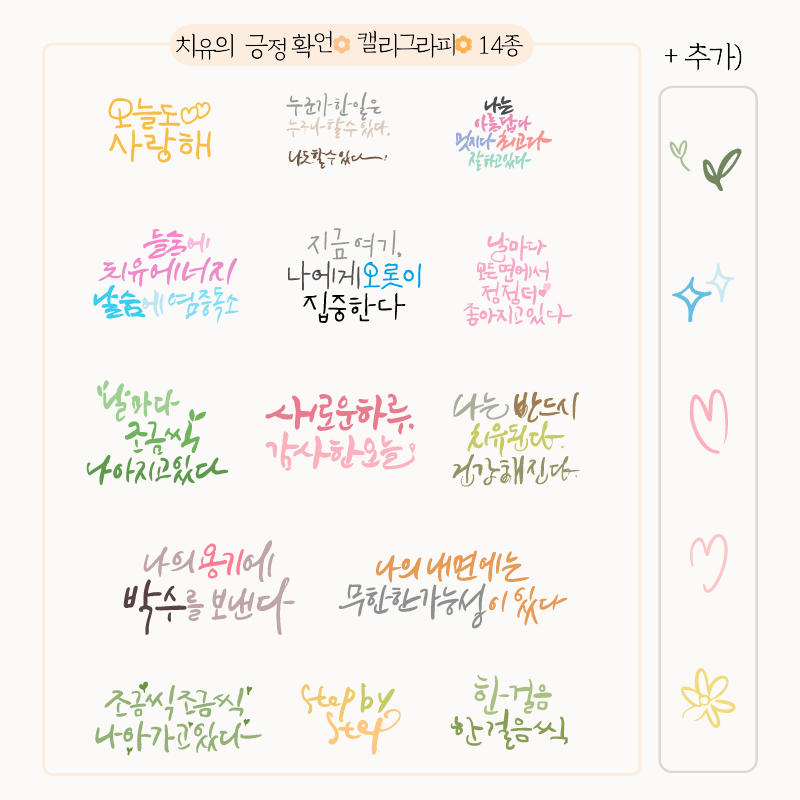 치유의 긍정 확언 캘리그라피 14종
+ 추가)
오늘도
사랑해
누군가 한 일은
누구나 할 수 있다.
나도 할 수 있다!
나는
아름답다
멋지다 최고다
잘하고 있다
들숨에
치유에너지
날숨에 염증독소
지금 여기,
나에게 오롯이
집중한다
날마다
모든 면에서
점점 더
좋아지고 있다
날마다
조금씩
나아지고 있다
새로운 하루,
감사한 오늘
나는 반드시
치유된다.
건강해진다.
나의 용기에
박수를 보낸다
나의 내면에는
무한한 가능성이 있다
조금씩 조금씩
나아가고 있다
Step by
Step
한 걸음
한 걸음씩